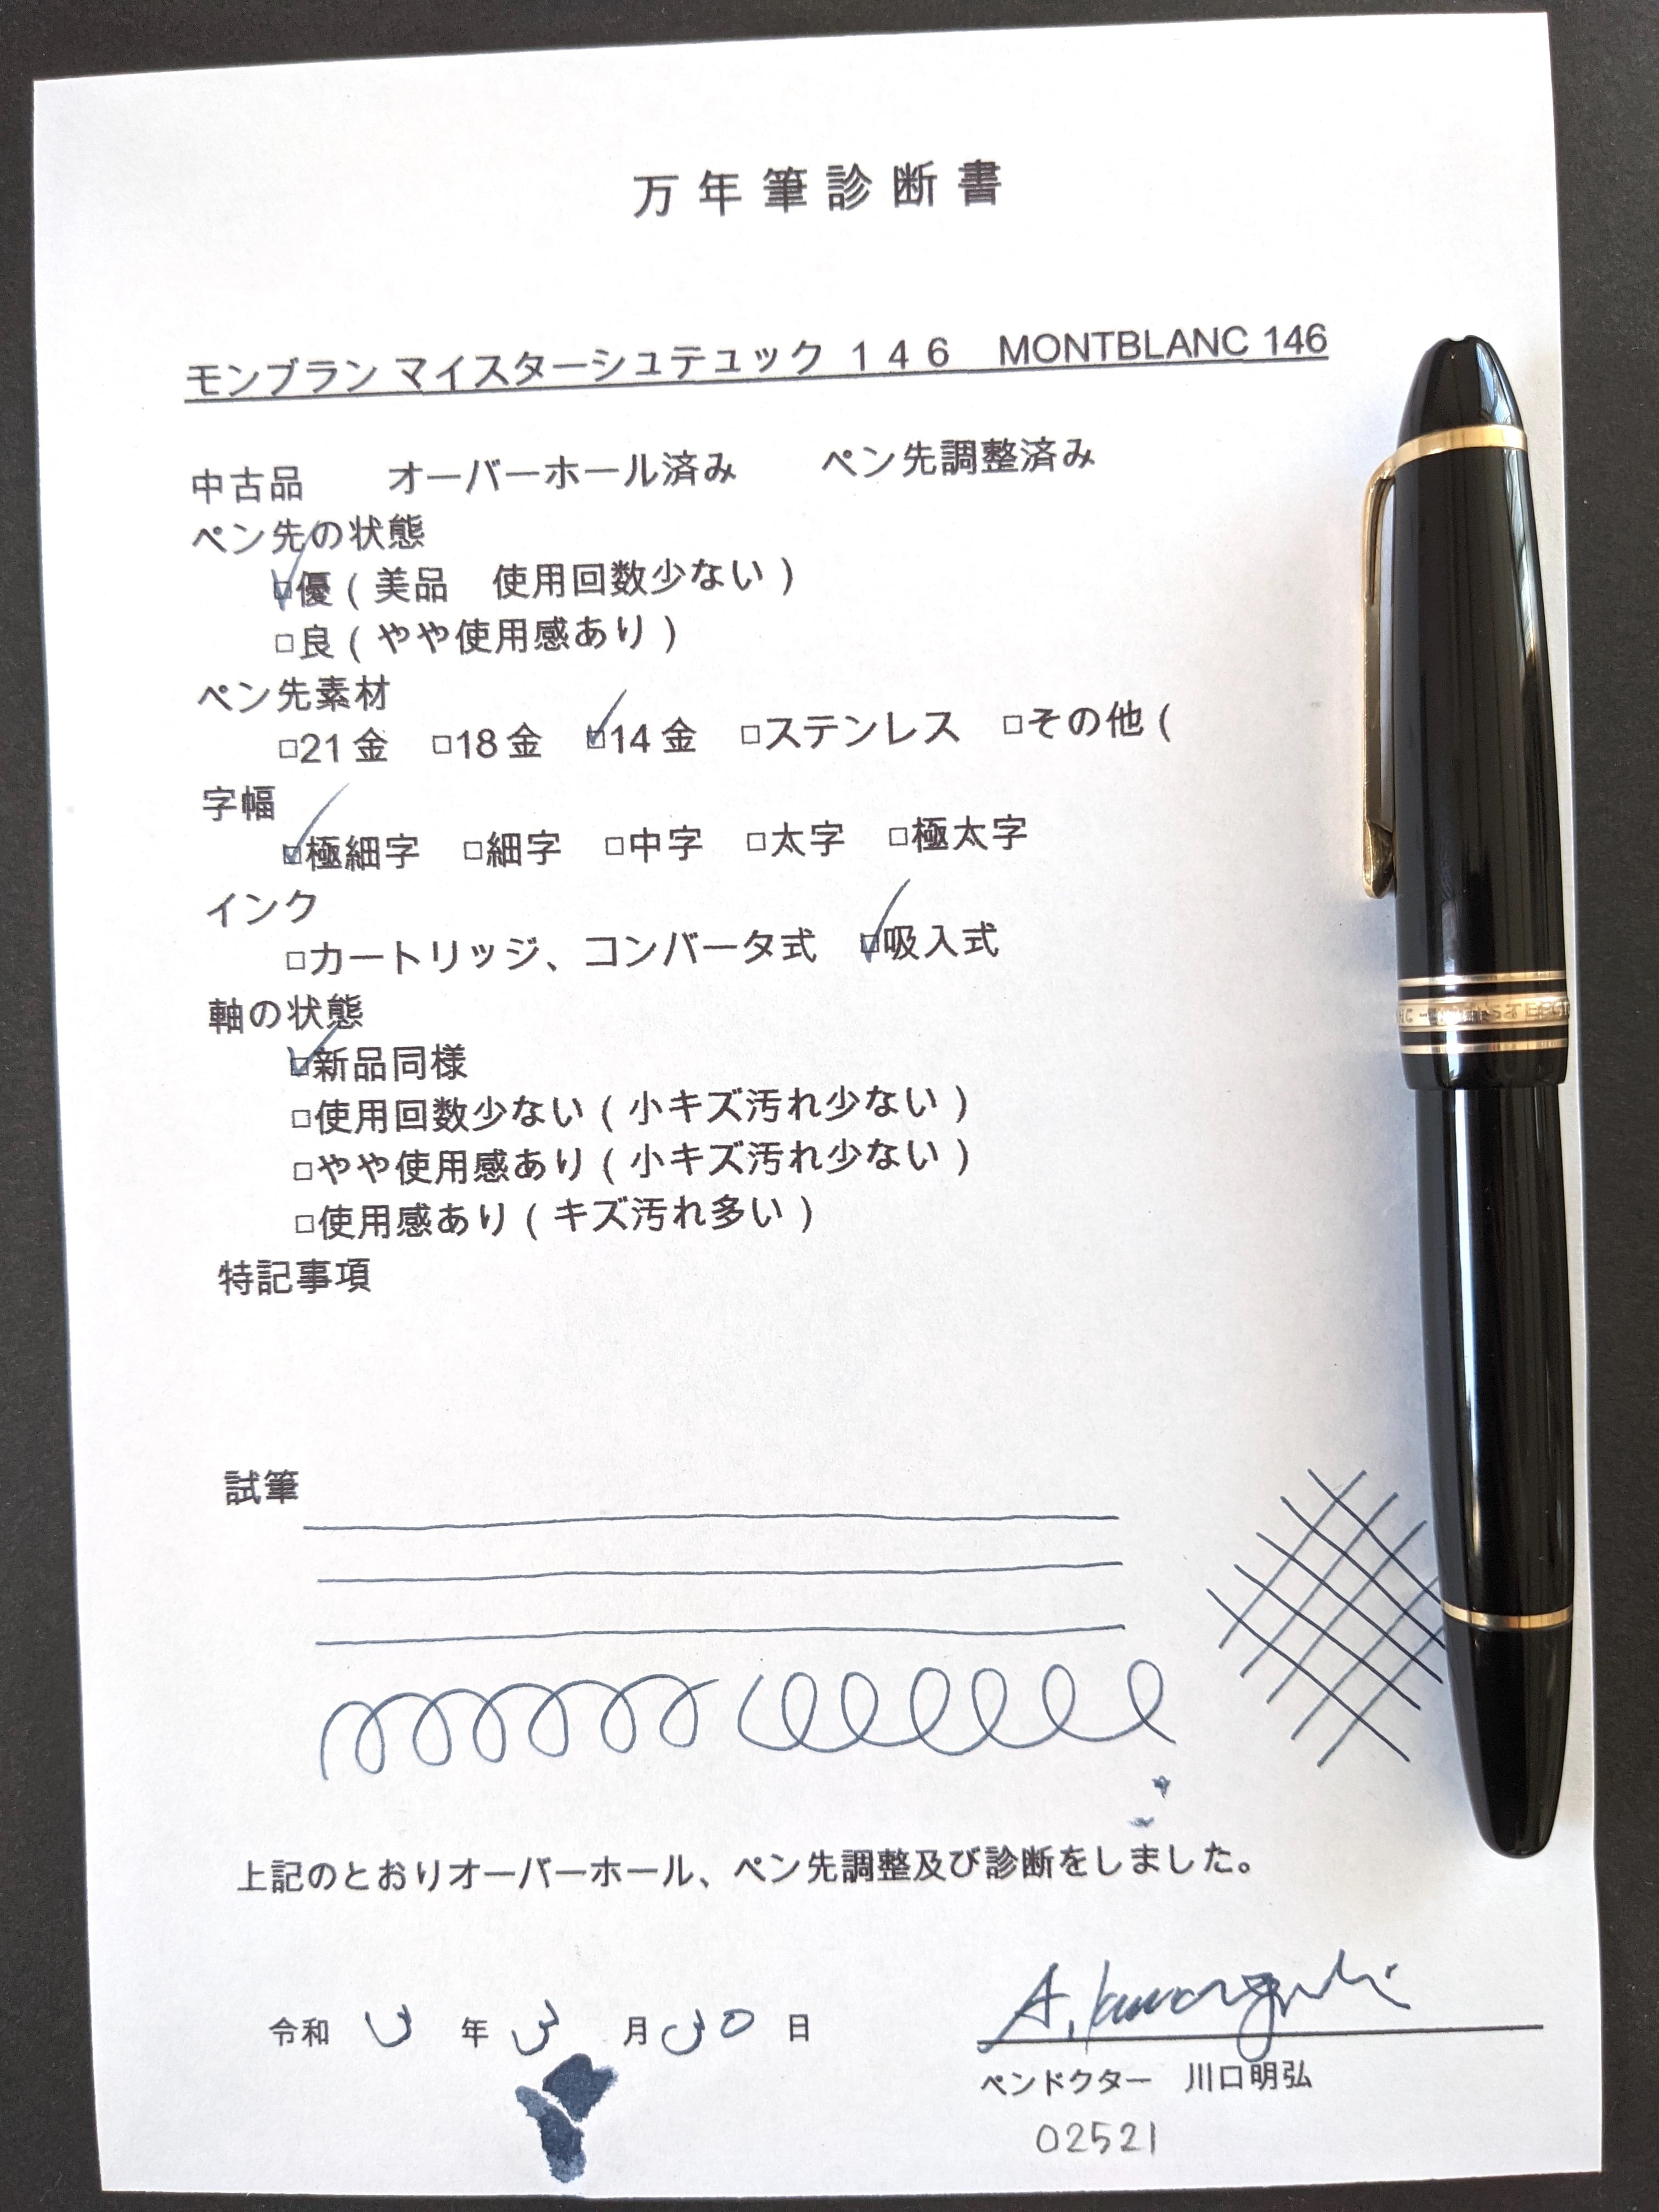 万年筆診断書
モンブラン マイスターシュテュック １４６　MONTBLANC 146
中古品　　オーバーホール済み　　ペン先調整済み
ペン先の状態
☑優（美品　使用回数少ない）
□良（やや使用感あり）
ペン先素材
□21金　□18金　☑14金　□ステンレス　□その他（
字幅
☑極細字　□細字　□中字　□太字　□極太字
インク
□カートリッジ、コンバータ式　☑吸入式
軸の状態
☑新品同様
□使用回数少ない（小キズ汚れ少ない）
□やや使用感あり（小キズ汚れ少ない）
□使用感あり（キズ汚れ多い）
特記事項
試筆
上記のとおりオーバーホール、ペン先調整及び診断をしました。
令和 3 年 3 月 30 日
A. Kawaguchi
ペンドクター　川口明弘
02521